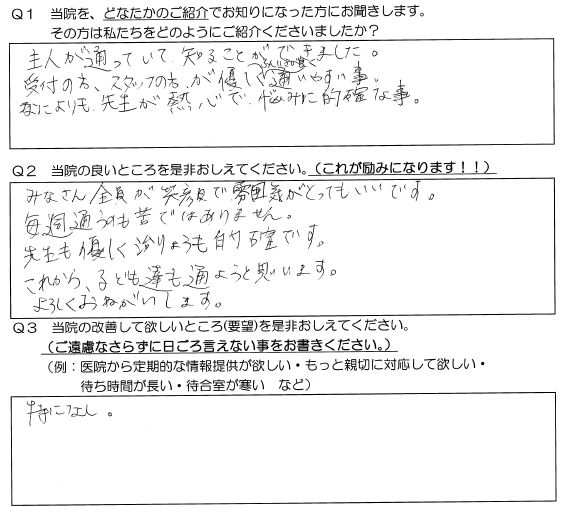 Q1 当院を、どなたかのご紹介でお知りになった方にお聞きします。
その方は私たちをどのようにご紹介くださいましたか?
主人が通っていて、知ることができました。
受付の方、スタッフの方が優しく通いやすい事。
なによりも、先生が熱心で、悩みに的確な事。
Q2 当院の良いところを是非おしえてください。(これが励みになります!!)
みなさん全員が笑顔で雰囲気がとってもいいです。
毎週通うのも苦ではありません。
先生も優しく治りょうも的確です。
これから、子ども達も通ようと思います。
よろしくおねがいします。
Q3 当院の改善して欲しいところ(要望)を是非おしえてください。
(ご遠慮なさらずに日ごろ言えない事をお書きください。)
(例:医院から定期的な情報提供が欲しい・もっと親切に対応して欲しい・
待ち時間が長い・待合室が寒い など)
特になし。